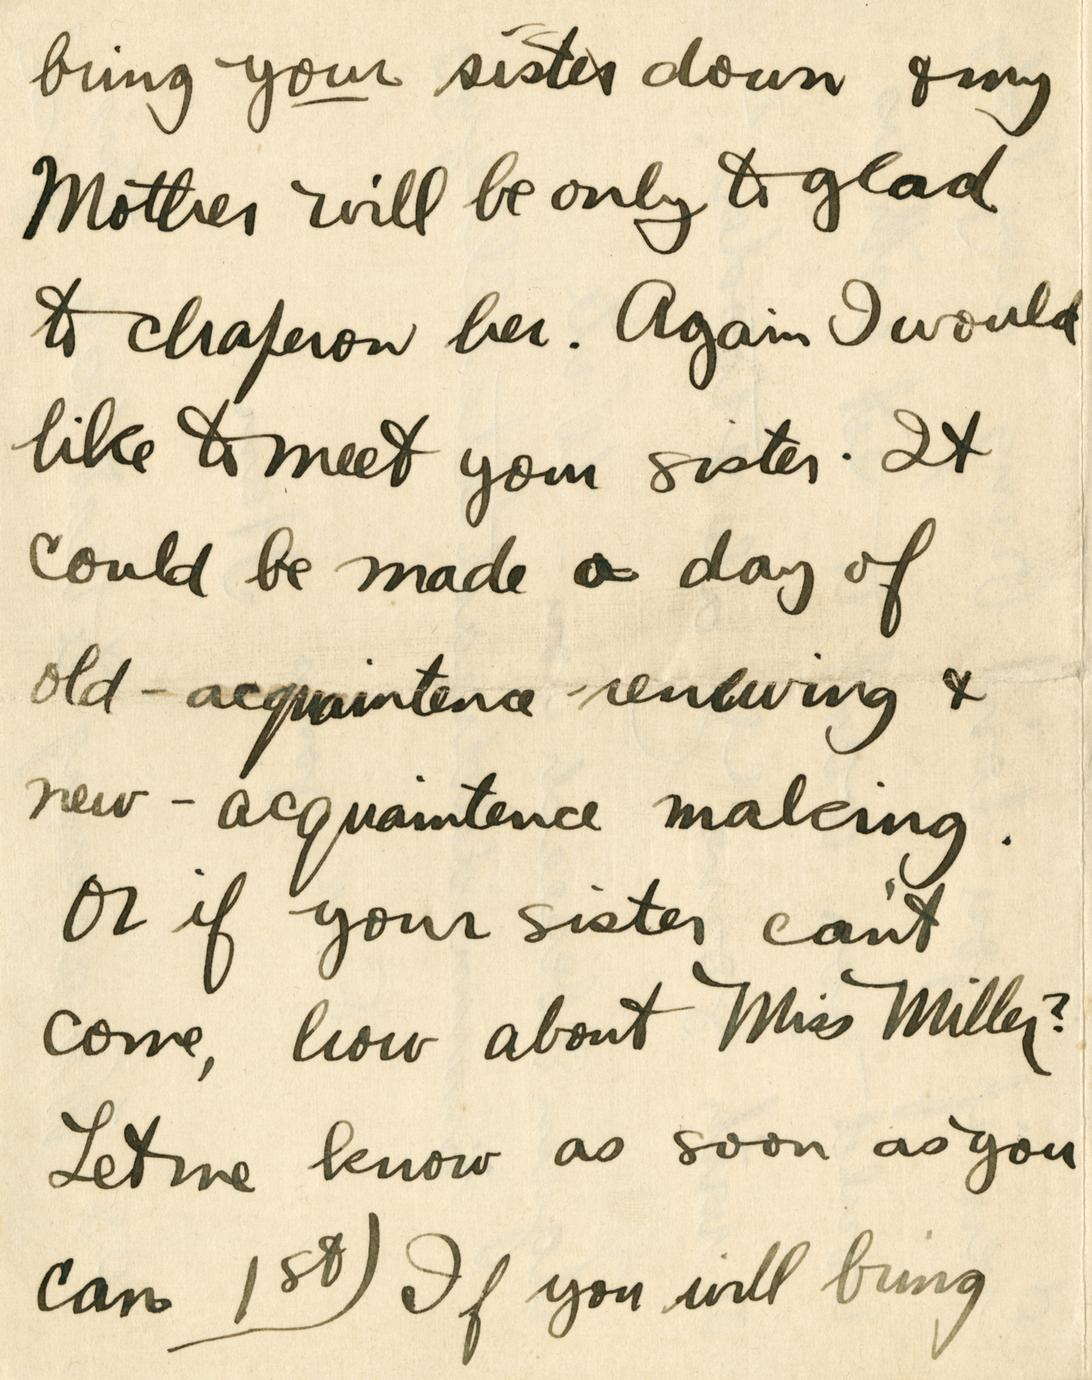 bring your sister down & my
Mother will be only to glad
to chaperon her. Again I would
like to meet your sister. It
could be made a day of
old - acquaintence - renewing &
new - acquaintence making.
Or if your sister can't
come, how about Miss Miller?
Let me know as soon as you
can 1st) If you will bring